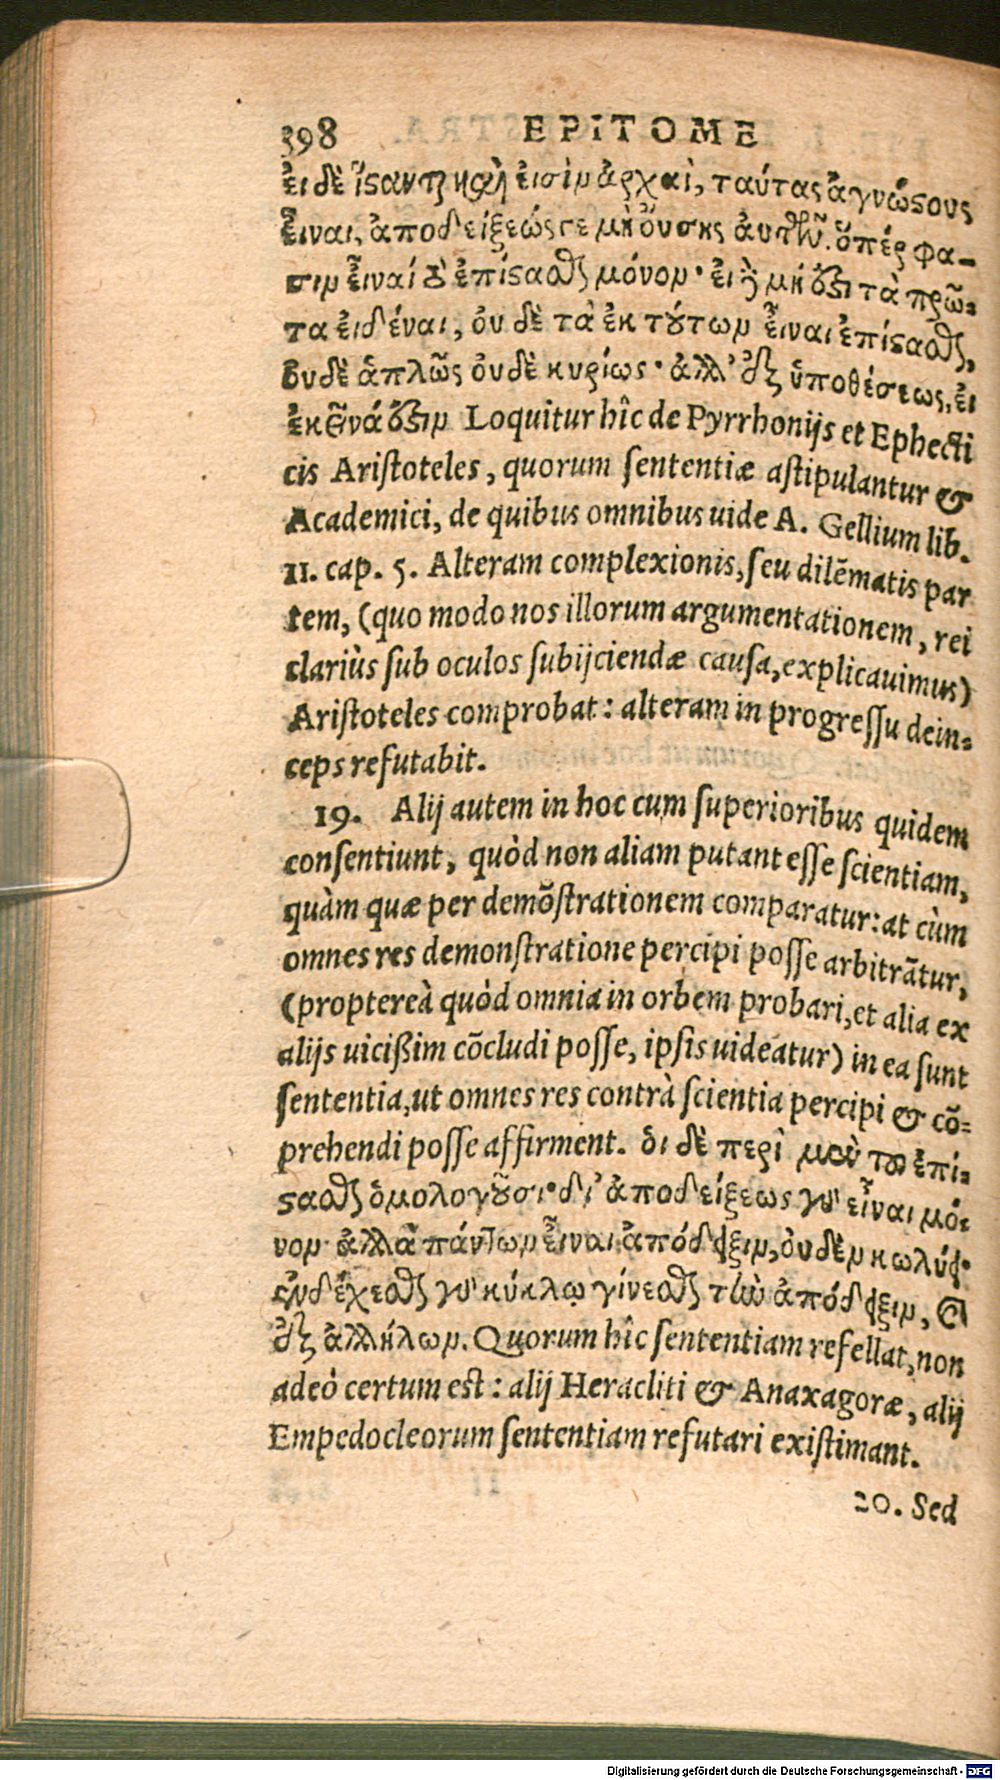 398 EPITOME
εἰ δὲ ἵστανται καὶ εἰσὶν ἀρχαὶ, ταύτας ἀγνώστους
εἶναι, ἀποδείξεώς γε μὴ οὔσης ἀυτῶν. ὅπέρ φα-
σιν εἶναί τὸ ἐπίστασθαι μόνον· εἰ δὲ μὴ ἔστι τὰ πρῶ-
τα εἰδέναι, ὀυδὲ τὰ ἐκ τούτων εἶναι ἐπίστασθαι,
ὀυδὲ ἁπλῶς ὀυδὲ κυρίως· ἀλλ' ἐξ ὑποθέσεως, εἰ
ἐκεῖνά ἐστιν Loquitur hîc de Pyrrhonijs et Ephecti
cis Aristoteles, quorum sententiæ astipulantur &
Academici, de quibus omnibus uide A. Gellium lib.
11. cap. 5. Alteram complexionis, seu dilẽmatis par
tem, (quo modo nos illorum argumentationem, rei
clariùs sub oculos subijciendæ causa, explicauimus)
Aristoteles comprobat: alteram in progressu dein-
ceps refutabit.
19. Alij autem in hoc cum superioribus quidem
consentiunt, quòd non aliam putant esse scientiam,
quàm quæ per demõstrationem comparatur: at cùm
omnes res demonstratione percipi posse arbitrãtur,
(proptereà quòd omnia in orbem probari, et alia ex
alijs uicißim cõcludi posse, ipsis uideatur) in ea sunt
sententia, ut omnes res contrà scientia percipi & cõ-
prehendi posse affirment. ὁι δὲ περὶ μὲν τοῦ ἐπί-
στασθαι ὁμολογοῦσι· δι' ἀποδείξεως γὰρ εἶναι μό-
νον· ἀλλὰ πάντων εἶναι ἀπόδειξιν, ὀυδὲν κωλύει·
ἐνδέχεσθαι γὰρ κύκλῳ γίνεσθαι τὴν ἀπόδειξιν, καὶ
ἐξ ἀλλήλων. Quorum hîc sententiam refellat, non
adeò certum est: alij Heracliti & Anaxagoræ, alij
Empedocleorum sententiam refutari existimant.
20. Sed
Digitalisierung gefördert durch die Deutsche Forschungsgemeinschaft - DFG